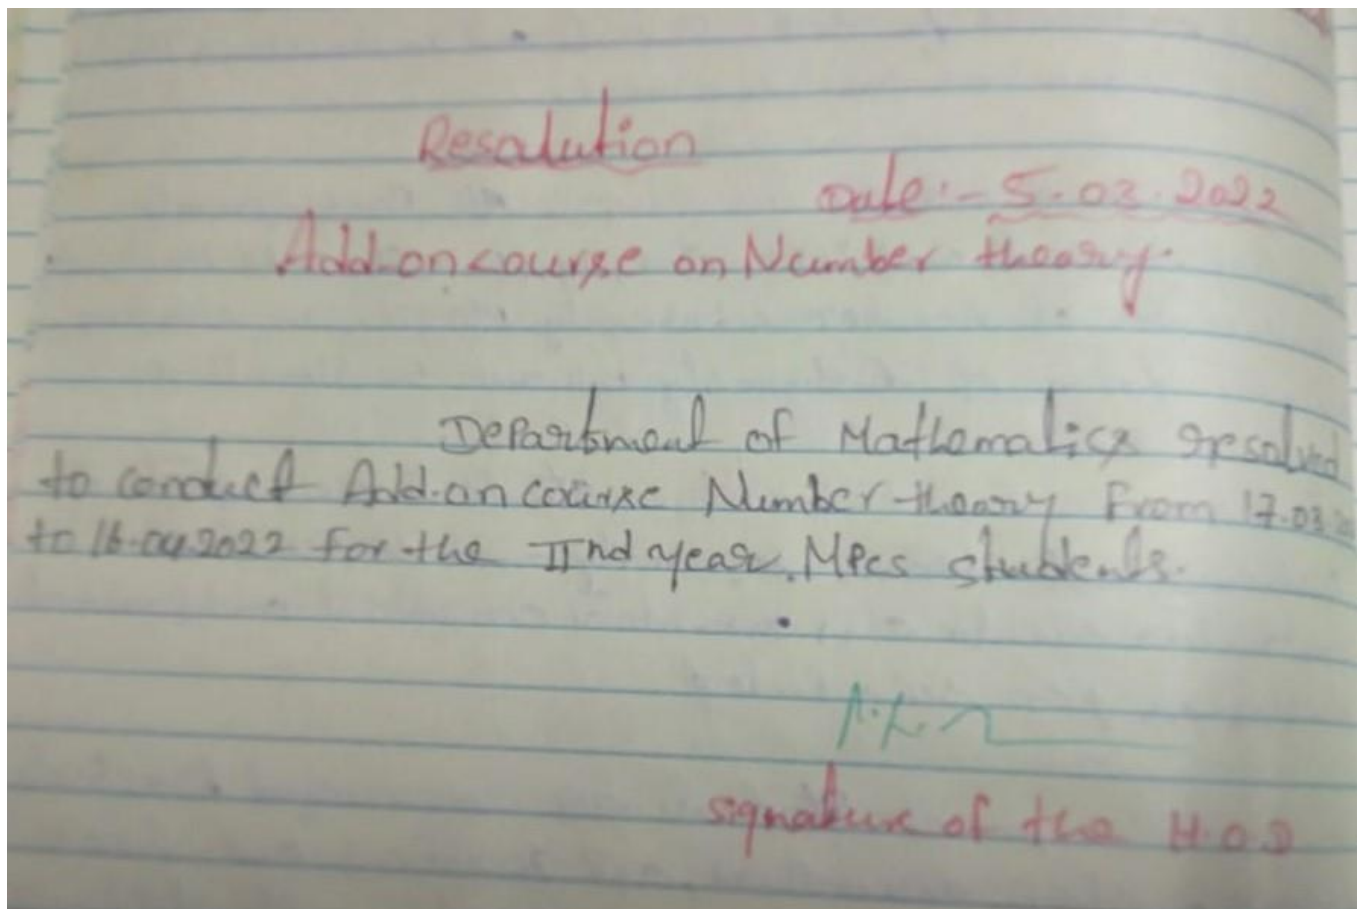 Resolution
Date:- 5.03.2022
Add-on course on Number theory.
Department of Mathematics resolved
to conduct Add-on course Number theory From 17.03.
to 16.04.2022 For the IInd year. MPCs students.
signature of the H.O.D